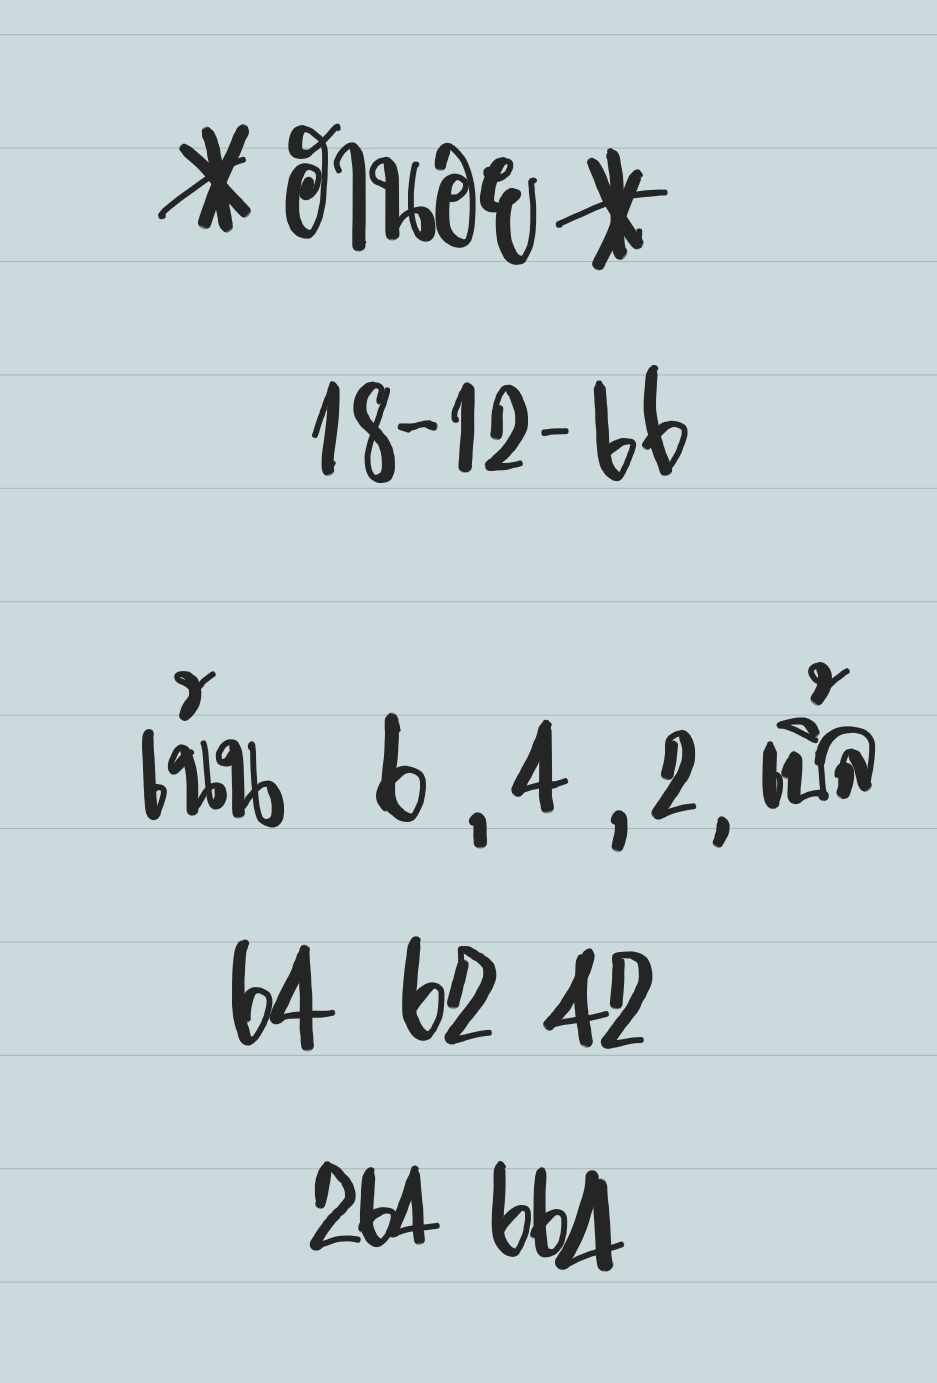 * ฮานอย *
18-12-66
เน้น 6, 4, 2, เบิ้ล
64 62 42
264 664